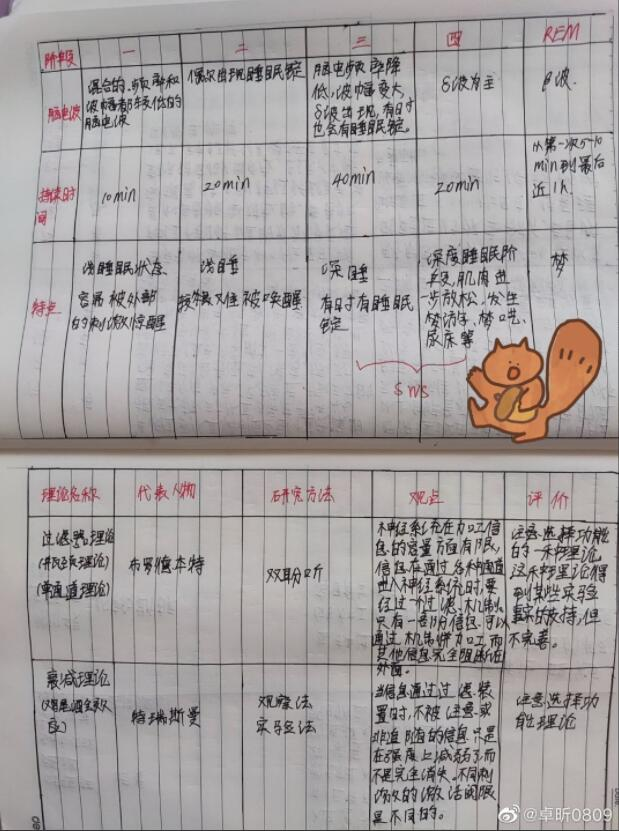 阶段 一 二 三 四 REM
脑电波
混合的、频率和
波幅都较低的
脑电波
偶尔出现睡眠锭
脑电频率降
低,波幅变大,
δ波出现,有时
也会有睡眠锭。
δ波为主
β波.
持续时
间
10min
20min
40min
20min
从第一次5-10
min到最后
近1h.
特点
浅睡眠状态
容易被外部
的刺激惊醒
浅睡
较难以被唤醒
深睡
有时有睡眠
锭
深度睡眠阶
段,肌肉进
一步放松、发生
梦游、梦呓、
尿床等
梦
SWS
理论名称 代表人物 研究方法 观点 评价
过滤器理论
(瓶颈理论)
(单通道理论)
布罗德本特
双耳分听
神经系统在加工信
息的容量方面有限,
信息在通过各种通道
进入神经系统时,要
经过一个过滤机制。
只有一部分信息可以
通过机制并加工,而
其他信息完全阻断在
外面。
注意选择功能
的一种理论
这种理论得
到某些实验
事实的支持,但
不完善。
衰减理论
特瑞斯曼
观察法
实验法
当信息通过过滤装
置时,不被注意或
非追随的信息只是
在强度上减弱了,而
不是完全消失。不同刺
激的激活阈限
是不同的。
注意选择功
能理论
@卓昕0809